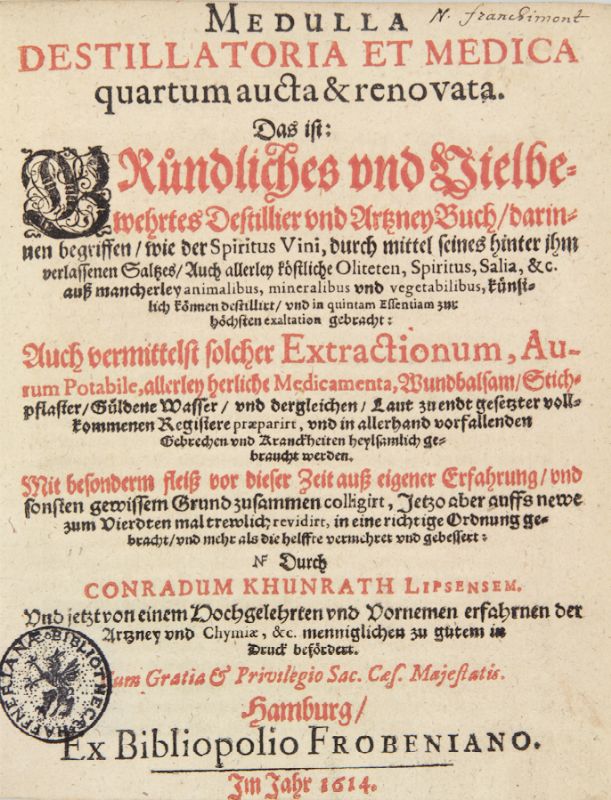 MEDULLA
N. franchimont
DESTILLATORIA ET MEDICA
quartum aucta & renovata.
Das ist:
GRůndliches vnd Vielbe-
wehrtes Destillier vnd Artzney Buch/darin-
nen begriffen/wie der Spiritus Vini, durch mittel seines hinter jhm
verlassenen Saltzes/Auch allerley köstliche Oliteten, Spiritus, Salia, &c.
auß mancherley animalibus, mineralibus vnd vegetabilibus, künst-
lich können destillirt/vnd in quintam Essentiam zur
höchsten exaltation gebracht:
Auch vermittelst solcher Extractionum, Au-
rum Potabile, allerley herliche Medicamenta, Wundbalsam/Stich-
pflaster/Güldene Wasser/vnd dergleichen/Laut zu endt gesetzter voll-
kommenen Registere præparirt, vnd in allerhand vorfallenden
Gebrechen vnd Kranckheiten heylsamlich ge-
braucht werden.
Mit besonderm fleiß vor dieser Zeit auß eigener Erfahrung/vnd
sonsten gewissem Grund zusammen colligirt, Jetzo aber auffs newe
zum Vierdten mal trewlich revidirt, in eine richtige Ordnung ge-
bracht/vnd mehr als die helffte vermehret vnd gebessert:
Durch
CONRADUM KHUNRATH LIPSENSEM.
Vnd jetzt von einem Hochgelehrten vnd Vornemen erfahrnen der
Artzney vnd Chymiæ, &c. menniglichen zu gutem in
Druck befördert.
Cum Gratia & Privilegio Sac. Cæs. Majestatis.
Hamburg/
Ex Bibliopolio FROBENIANO.
Im Jahr 1614.